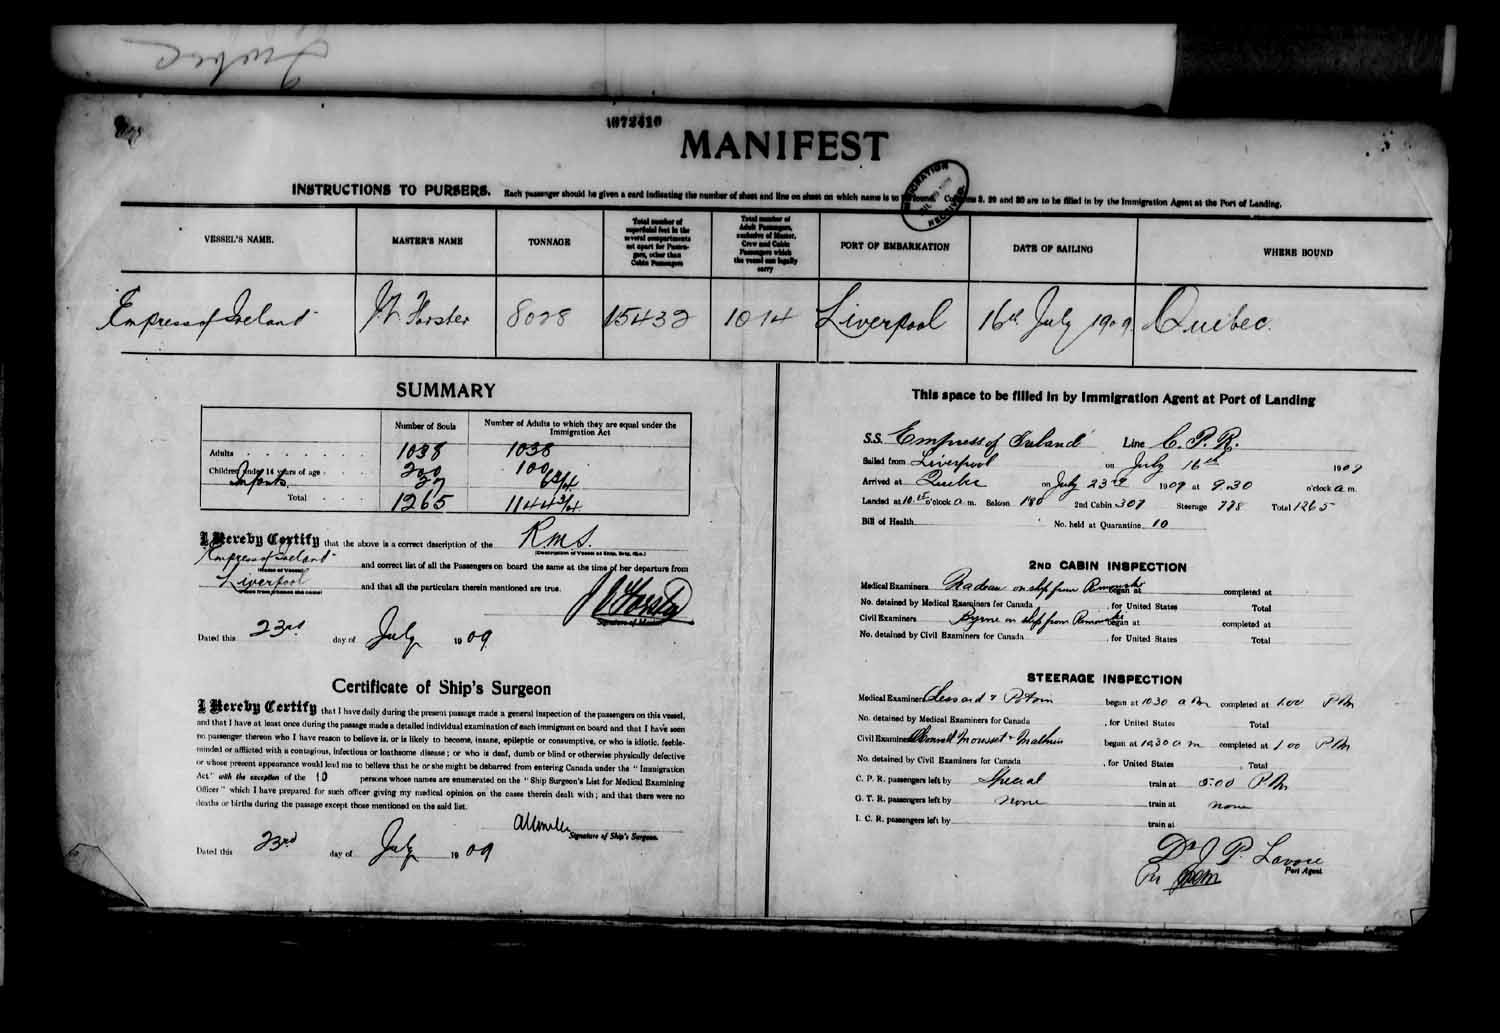 Quebec
1072410
MANIFEST
INSTRUCTIONS TO PURSERS. Each passenger should be given a card indicating the number of sheet and line on sheet on which name is to be found. Columns 3, 29 and 30 are to be filled in by the Immigration Agent at the Port of Landing.
IMMIGRATION
RECEIVED
VESSEL'S NAME.
MASTER'S NAME
TONNAGE
Total number of superficial feet in the several compartments set apart for Passengers, other than Cabin Passengers
Total number of Adult Passengers, exclusive of Master, Crew and Cabin Passengers which the vessel can legally carry
PORT OF EMBARKATION
DATE OF SAILING
WHERE BOUND
Empress of Ireland
Forster
8028
15432
1014
Liverpool
16th July 1909
Quebec.
SUMMARY
Number of Souls
Number of Adults to which they are equal under the Immigration Act
Adults 1038 1038
Children under 14 years of age 200 100
Infants 27 6 3/4
Total 1265 1144 3/4
I Hereby Certify that the above is a correct description of the R.M.S.
(Description of Vessel as Ship, Brig, &c.)
Empress of Ireland and correct list of all the Passengers on board the same at the time of her departure from
(Name of Vessel)
Liverpool and that all the particulars therein mentioned are true.
(Place from whence she came)
Forster
Signature of Master
Dated this 23rd day of July 1909
Certificate of Ship's Surgeon
I Hereby Certify that I have daily during the present passage made a general inspection of the passengers on this vessel,
and that I have at least once during the passage made a detailed individual examination of each immigrant on board and that I have seen
no passenger thereon who I have reason to believe is, or is likely to become, insane, epileptic or consumptive, or who is idiotic, feeble-
minded or afflicted with a contagious, infectious or loathsome disease; or who is deaf, dumb or blind or otherwise physically defective
or whose present appearance would lead me to believe that he or she might be debarred from entering Canada under the "Immigration
Act" with the exception of the 10 persons whose names are enumerated on the "Ship Surgeon's List for Medical Examining
Officer" which I have prepared for such officer giving my medical opinion on the cases therein dealt with; and that there were no
deaths or births during the passage except those mentioned on the said list.
Signature of Ship's Surgeon.
Dated this 23rd day of July 1909
This space to be filled in by Immigration Agent at Port of Landing
S.S. Empress of Ireland Line C.P.R.
Sailed from Liverpool on July 16th 1909
Arrived at Quebec on July 23rd 1909 at 9.30 o'clock a m.
Landed at 10.15 o'clock a m. Saloon 180 2nd Cabin 307 Steerage 778 Total 1265
Bill of Health No. held at Quarantine 10
2ND CABIN INSPECTION
Medical Examiners Nadeau on ship from Rimouski began at completed at
No. detained by Medical Examiners for Canada , for United States Total
Civil Examiners Byrne on ship from Rimouski began at completed at
No. detained by Civil Examiners for Canada , for United States Total
STEERAGE INSPECTION
Medical Examiners Lessard & Potvin began at 10 30 a m completed at 1.00 P M
No. detained by Medical Examiners for Canada , for United States Total
Civil Examiners began at 10,30 a m completed at 1 00 P M
No. detained by Civil Examiners for Canada , for United States , Total
C. P. R. passengers left by Special train at 5:00 P M
G. T. R. passengers left by none train at none
I. C. R. passengers left by train at
Dr J. P. Lavoie
Port Agent
Per